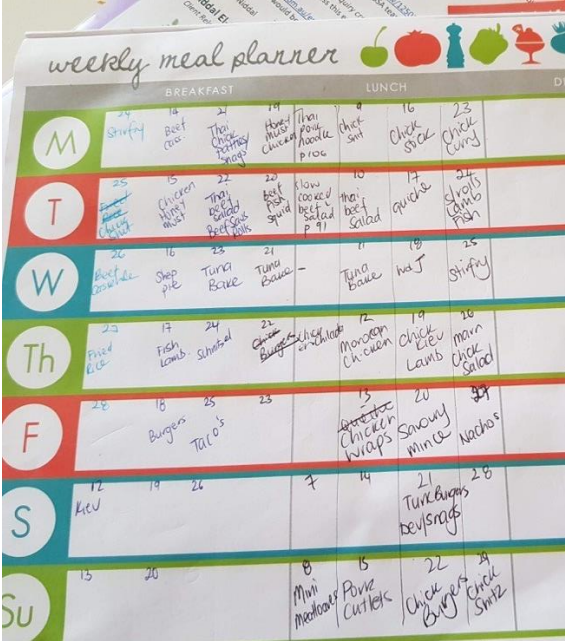 weekly meal planner
BREAKFAST
LUNCH
M
24
Stirfry
14
Beef
21
Thai
Chick
Patties/
Snags
19
Honey
must
Chicken
Thai
pork
noodle
p106
9
Chick
snit
16
Chick
Stick
23
Chick
Curry
T
25
Fried
Rice
15
Chicken
Honey
must
22
Thai
beef
Salad
Beef Saus
Rolls
20
Beef
Fish
Squid
Slow
cooked
beef
Salad
p 91
10
Thai
beef
Salad
17
quiche
24
S/rolls
Lamb
Fish
W
26
Beef
Casserole
16
Shep
pie
23
Tuna
Bake
21
Tuna
Bake
-
11
Tuna
bake
18
25
Stirfry
Th
27
Fried
Rice
17
Fish
Lamb.
24
Schnitzel
22
Chick
Burgers
Chick
enchilada
12
Moroccan
Chicken
19
Chick
Kiev
Lamb
26
marn
Chick
Salad
F
28
18
Burgers
25
Taco's
23
13
Quiche
Chicken
Wraps
20
Savoury
mince
27
Nachos
S
12
Kiev
19
26
7
14
21
Turk Burgers
bev/snags
28
Su
13
20
8
Mini
meatloaves
15
Pork
Cutlets
22
Chick
Burgers
29
Chick
Snitz